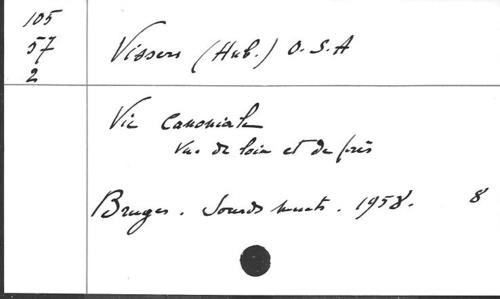 105
57
2
Vissers (Hub.) O.S.A
Vie Canoniale
Vue de loin et de près
Bruges. Sourds muets. 1958. 8